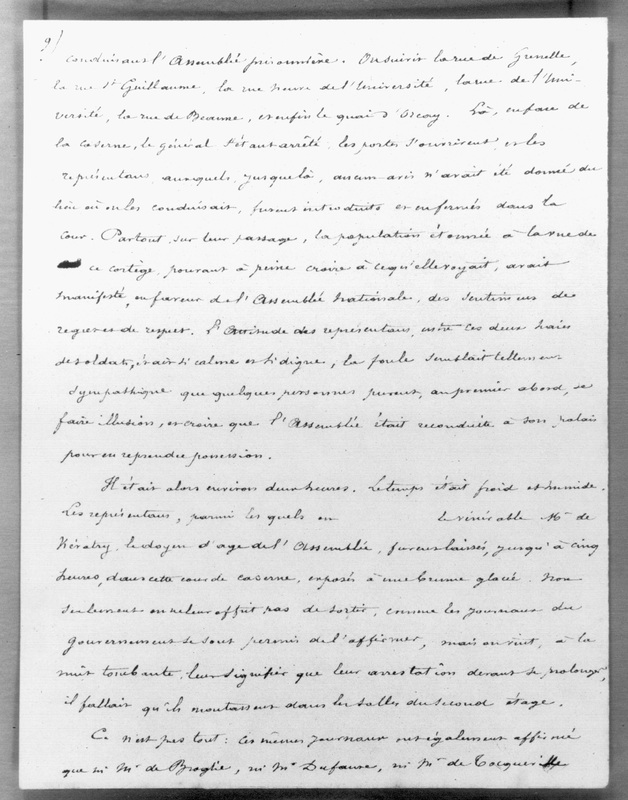 9)
conduisant l'Assemblée prisonnière. On suivit la rue de Grenelle,
la rue St Guillaume, la rue neuve de l'Université, la rue de l'Uni-
versité, la rue de Beaune, et enfin le quai d'Orsay. Là, en face de
la caserne, le général s'étant arrêté, les portes s'ouvrirent, et les
représentans auxquels, jusque là, aucun avis n'avait été donné du
lieu où on les conduisait, furent introduits et enfermés dans la
cour. Partout, sur leur passage, la population étonnée à la vue de
ce cortège, pouvant à peine croire à ce qu'elle voyait, avait
manifesté, en faveur de l'Assemblée Nationale, des sentimens de
regret et de respect. L'attitude des représentans, entre ces deux haies
de soldats, était si calme et si digne, la foule semblait tellement
sympathique que quelques personnes purent, au premier abord, se
faire illusion, et croire que l'Assemblée était reconduite à son palais
pour en reprendre possession.
Il était alors environ deux heures. Le temps était froid et humide.
Les représentans, parmi les quels on le vénérable Mr de
Kératry, le doyen d'age de l'Assemblée, furent laissés, jusqu'à cinq
heures, dans cette cour de caserne, exposés à une brume glacée. Non
seulement on ne leur offrit pas de sortir, comme les journaux du
gouvernement se sont permis de l'affirmer, mais on vint, à la
nuit tombante, leur signifier que leur arrestation devant se prolonger,
il fallait qu'ils montassent dans les salles du second étage.
Ce n'est pas tout : ces mêmes journaux ont également affirmé
que ni Mr de Broglie, ni Mr Dufaure, ni Mr de Tocqueville